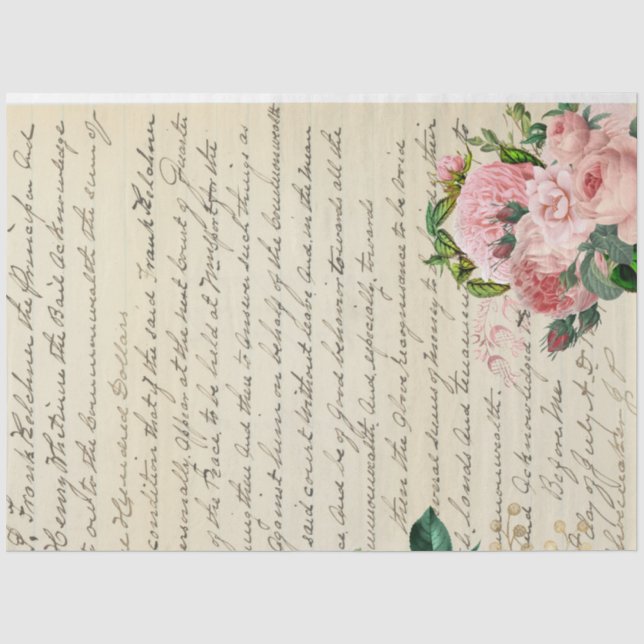 Frank Kelchner the Principal and
Henry Whitenire the Bail acknowledge
out to the Commonwealth the sum of
Hundred Dollars
condition that if the said Frank Kelchner
ersonally appear at the next Court of Quarter
of the Peace, to be held at Newport for the
and there to answer such things as
against him on behalf of the Commonwealth
said court without leave and in the mean
e, and be of Good behavior towards all the
monwealth. And, especially, towards
then the above recognizance to be void
several sums of money to
s, lands and tenaments to
monwealth.
and Acknowledged
Before Me
day of July A.D.
J.P.